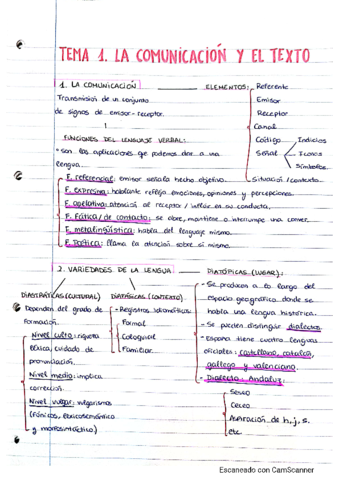 TEMA 1. LA COMUNICACIÓN Y EL TEXTO
1. LA COMUNICACIÓN
Transmisión de un conjunto
de signos de emisor-receptor.
ELEMENTOS:
Referente
Emisor
Receptor
Canal
Código
Señal
Indicios
Iconos
Símbolos
Situación/contexto
FUNCIONES DEL LENGUAJE VERBAL:
• son las aplicaciones que podemos dar a una
lengua.
F. referencial: emisor señala hecho objetivo.
F. expresiva: hablante refleja emociones, opiniones y percepciones.
F. apelativa: atención al receptor / influir en su conducta.
F. Fática/de contacto: se abre, mantiene o interrumpe una conver.
F. metalingüística: habla del lenguaje mismo.
F. Poética: llama la atención sobre sí mismo.
2. VARIEDADES DE LA LENGUA
DIASTRÁTICAS (CULTURAL)
Dependen del grado de
formación.
Nivel culto: riqueza
léxica, cuidado de
pronunciación.
Nivel medio: implica
corrección.
Nivel vulgar: vulgarismos
(fónicos, léxicosemántico
y morfosintáctico)
DIAFÁSICAS (CONTEXTO)
- Registros idiomáticos:
Formal
Coloquial
Familiar.
DIATÓPICAS (LUGAR):
- Se producen a lo largo del
espacio geográfico donde se
habla una lengua histórica.
- Se pueden distinguir dialectos
- España tiene cuatro lenguas
oficiales: castellano, catalán,
gallego y valenciano.
- Dialecto Andaluz:
Seseo
Ceceo
Aspiración de h, j, s.
etc.
Escaneado con CamScanner